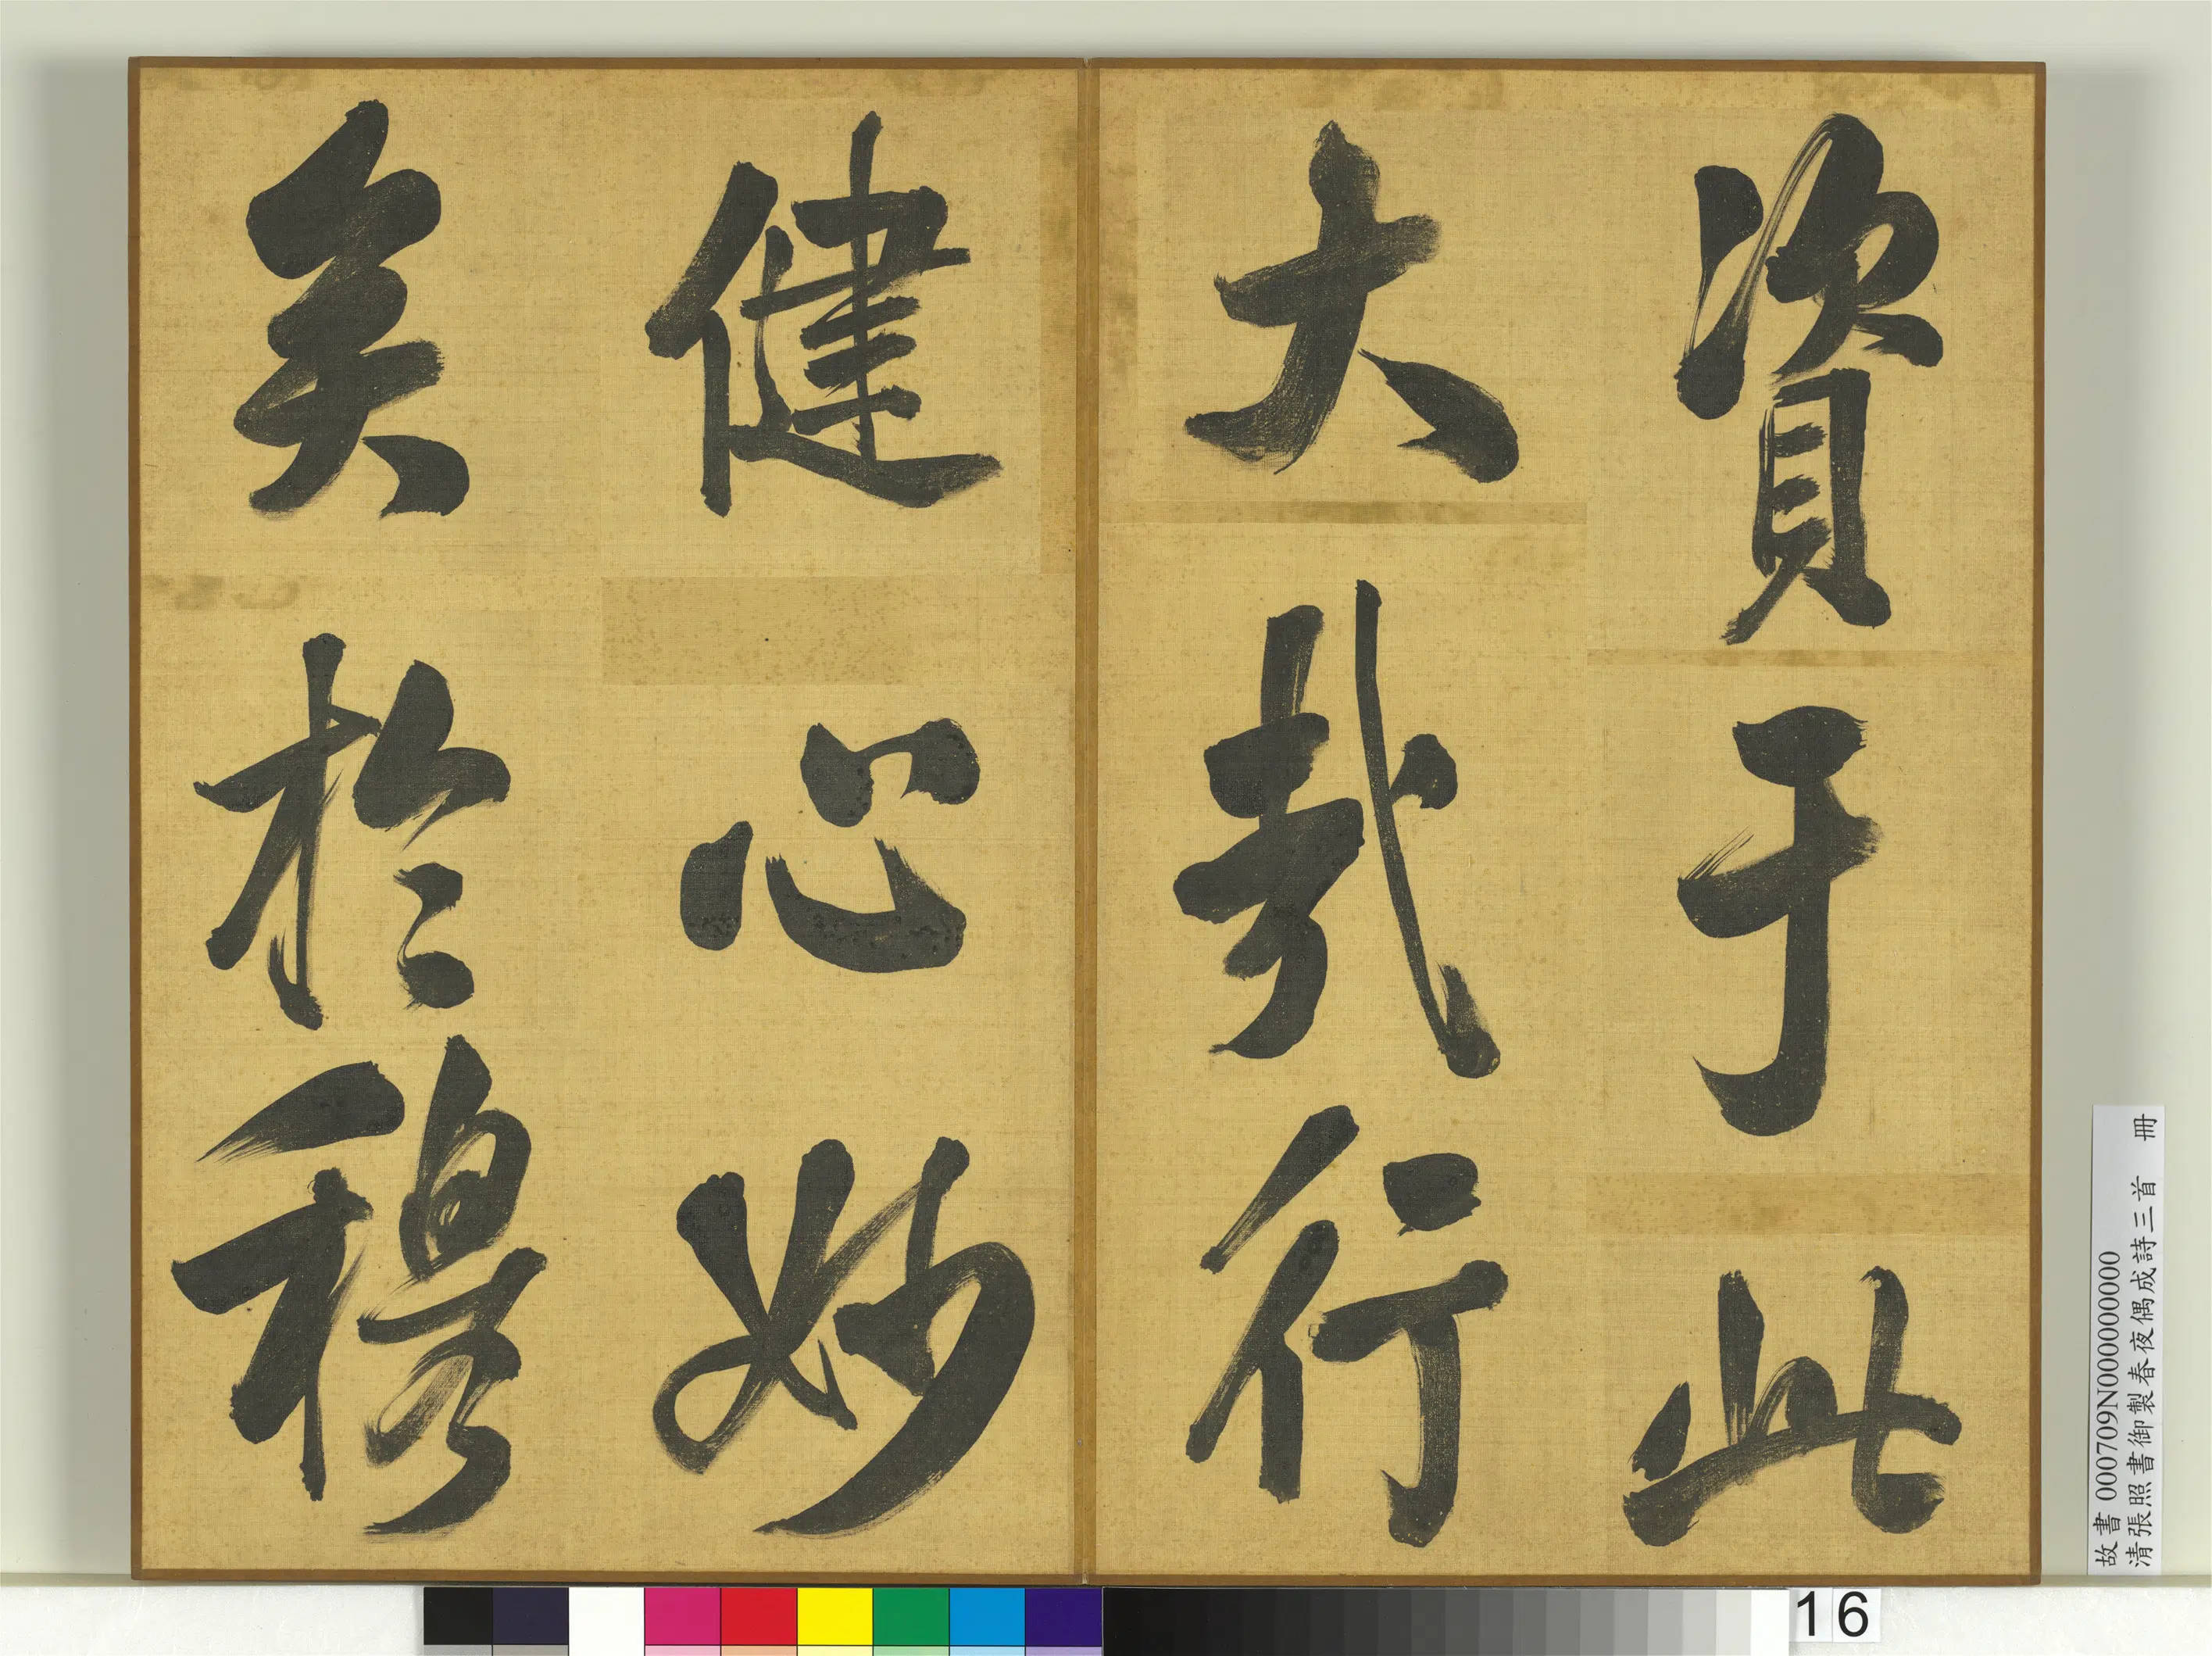 資于此
大哉行
健心妙
矣於穆
故書 000709N000000000
清張照書御製春夜偶成詩三首 冊
16